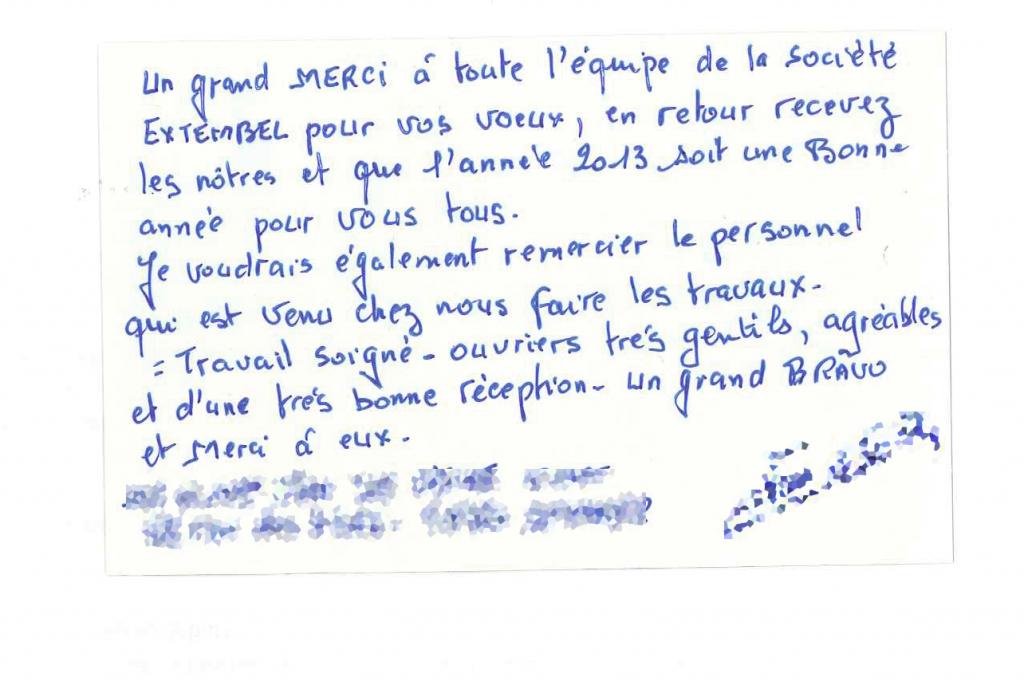 Un grand MERCi à toute l'équipe de la société
EXTEMBEL pour vos voeux, en retour recevez
les nôtres et que l'année 2013 soit une Bonne
année pour vous tous.
Je voudrais également remercier le personnel
qui est venu chez nous faire les travaux.
= Travail soigné - ouvriers très gentils, agréables
et d'une très bonne réception - un grand BRAVO
et Merci à eux.